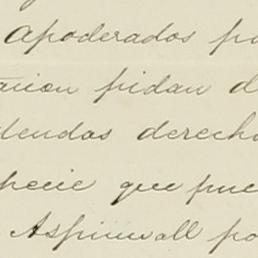 Apoderados po
tacion pidan d
dendas derecho
pecie que pue
Aspinwall po